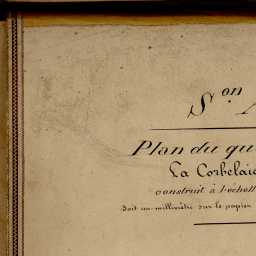 Son
Plan du qu
La Corbelai
construit à l'échell
soit un millimètre sur le papier